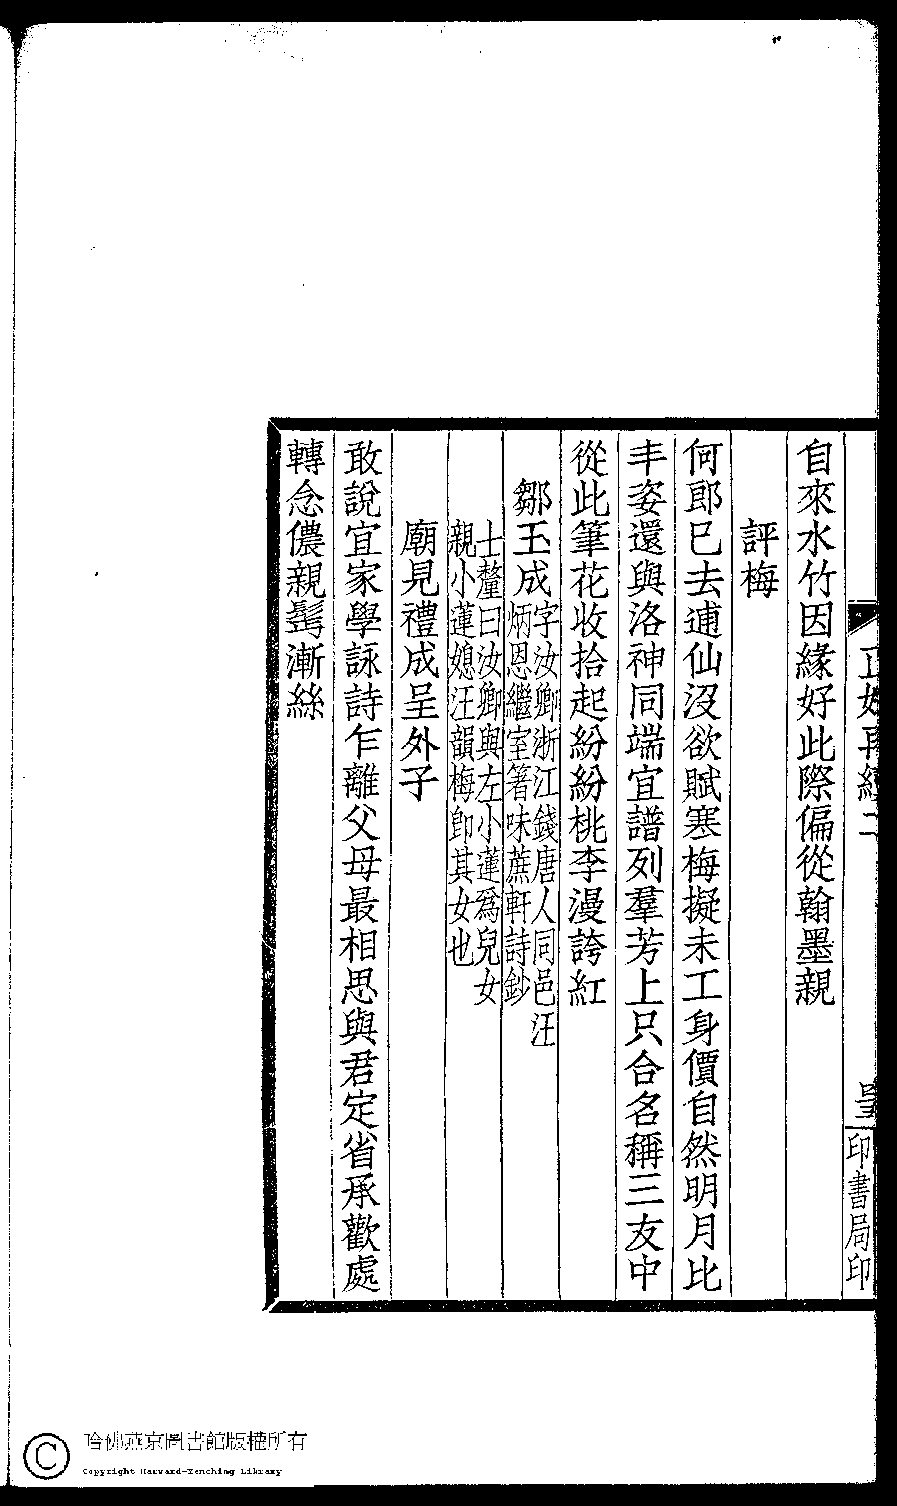 自來水竹因緣好此際偏從翰墨親
評梅
何郎已去逋仙沒欲賦寒梅擬未工身價自然明月比
丰姿還與洛神同端宜譜列羣芳上只合名稱三友中
從此筆花收拾起紛紛桃李漫誇紅
鄒玉成字汝卿浙江錢唐人同邑汪
炳恩繼室箸味蔗軒詩鈔
士釐曰汝卿與左小蓮爲兒女
親小蓮媳汪韻梅卽其女也
廟見禮成呈外子
敢說宜家學詠詩乍離父母最相思與君定省承歡處
轉念儂親髩漸絲
印書局印
哈佛燕京圖書館版權所有
Copyright Harvard-Yenching Library